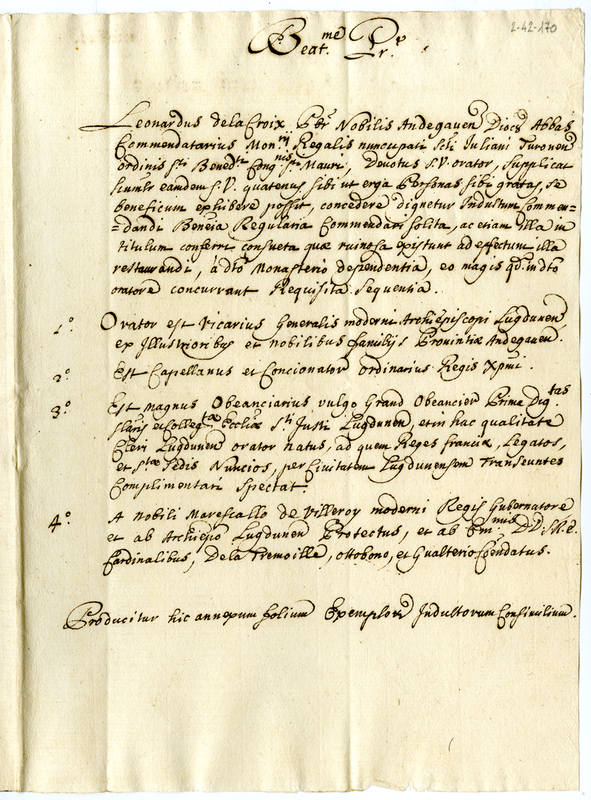 2-42-170
Beat.me Pr.e
Leonardus de la Croix Pbr Nobilis Andegaven Dioces Abbas
Commendatarius Monrij Regalis nuncupati Scti Juliani Turonen
ordinis sti Bened.ti Cong.nis sti Mauri, Devotus S.V. orator, supplicat
humilr eamdem S.V. quatenus sibi ut erga Personas sibi gratas, se
beneficum exhibere possit, concedere dignetur Indultum Commen=
=dandi Beneia Regularia Commendari solita, ac etiam illa in
titulum conferri consueta quæ ruinosa existunt ad effectum illa
restaurandi, à dto Monasterio dependentia, eo magis qd. in dto
oratore concurrant Requisita sequentia.
1.o Orator est Vicarius Generalis moderni Archiepiscopi Lugdunen
ex Illustrioribus et nobilibus familijs Provintiæ Andegaven.
2.o Est Capellanus et Concionator ordinarius Regis Xpmi.
3.o Est magnus Obeanciarius vulgo Grand Obeancier Prima Dig.tas
sclaris et Colleg.tæ Eccliæ S.ti Justi Lugdunen, et in hac qualitate
Cleri Lugdunen orator natus, ad quem Reges franciæ, Legatos,
et s.tæ Sedis Nuncios, per Civitatem Lugdunensem Transeuntes
Complimentari spectat.
4.o A Nobili Marescallo de Villeroy moderni Regis Gubernatore
et ab Archiepo Lugdunen Protectus, et ab Em.mis DD. S.R.E.
Cardinalibus, De la Tremoille, ottobono, et Gualterio Comendatus.
Producitur hic annexum folium Exemplorum Indultorum Consimilium.